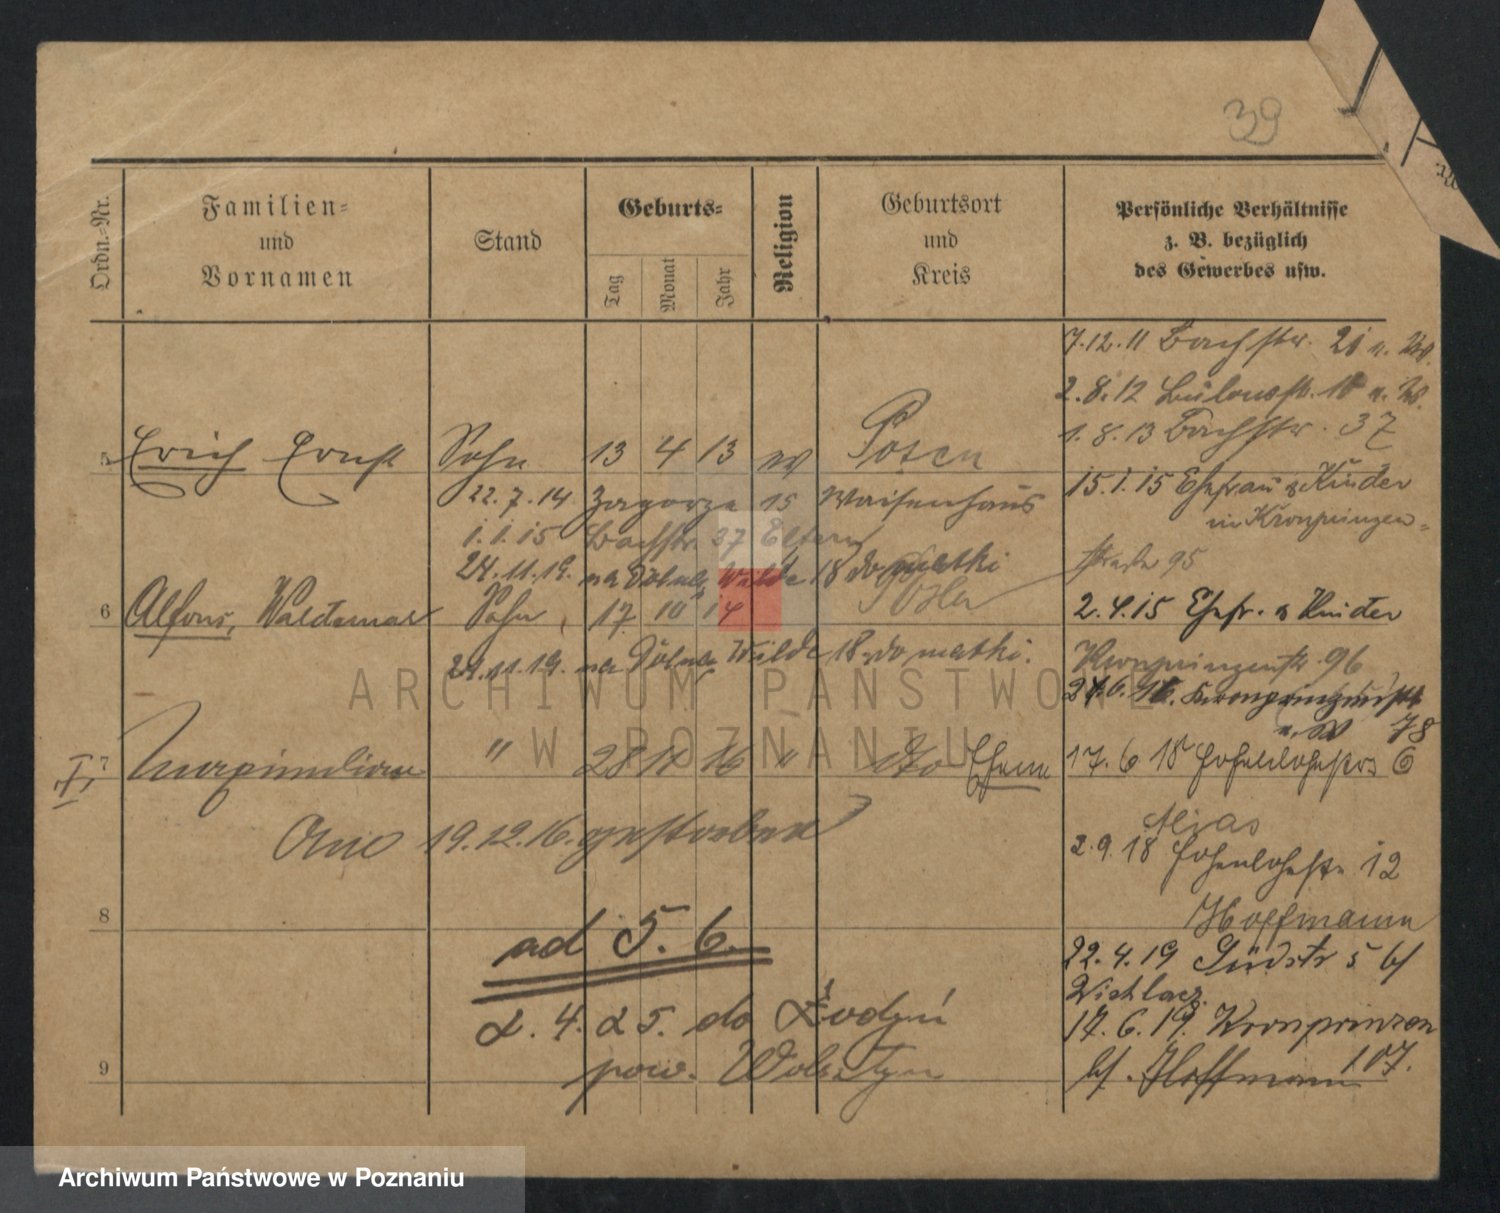 39
Ordn.-Nr.
Familien-
und
Vornamen
Stand
Geburts-
Tag
Monat
Jahr
Religion
Geburtsort
und
Kreis
Persönliche Verhältnisse
z. B. bezüglich
des Gewerbes usw.
7.12.11 Bachstr. 21
2.8.12 Bülowstr.
1.8.13 Bachstr. 37
5 Erich Ernst Sohn 13 4 13 Posen
15.1.15 Ehefrau & Kinder
in Kronprinzen-
straße 95
22.7.14 Zagorze 15 Waisenhaus
1.1.15 Bachstr. 37 Eltern
24.11.19. na Dolna Wilde 18 do matki
6 Alfons, Waldemar Sohn 17 10 14 Posen
2.4.15 Ehefr. & Kinder
Kronprinzenstr. 96
24.11.19. na Dolna Wilde 18 do matki.
78
I, 7 Maximilian " 28 11 16 "
17.6.18 Hohenlohestr. 6
19.12.16. gestorben
2.9.18 Hohenlohestr. 12
Hoffmann
8
ad 5. 6.
22.4.19 Südstr 5 b/
17.6.19. Kronprinzen
107.
b/. Hoffmann
2. 4. 25. do
9
pow. Wolsztyn
ARCHIWUM PAŃSTWOWE
W POZNANIU
Archiwum Państwowe w Poznaniu